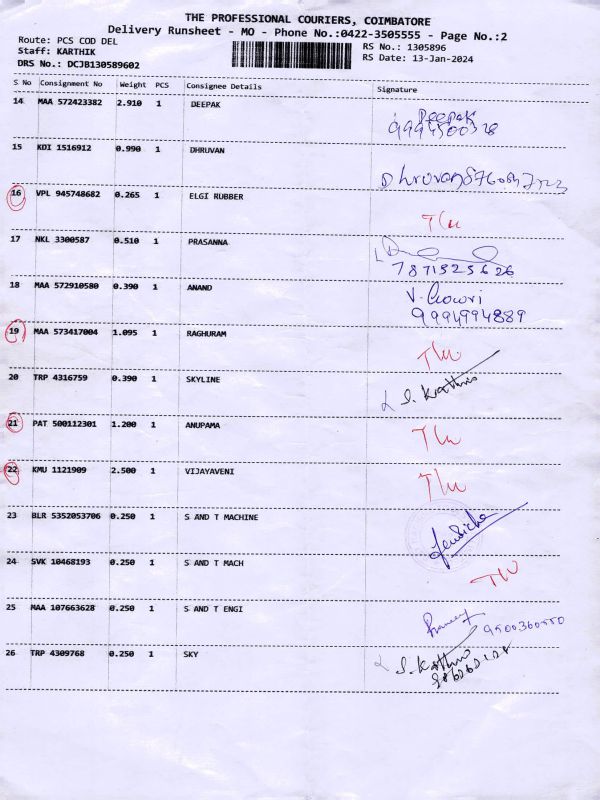 THE PROFESSIONAL COURIERS, COIMBATORE
Delivery Runsheet - MO - Phone No.:0422-3505555 - Page No.:2
Route: PCS COD DEL
Staff: KARTHIK
DRS No.: DCJB130589602
RS No.: 1305896
RS Date: 13-Jan-2024
S No Consignment No Weight PCS Consignee Details Signature
14 MAA 572423382 2.910 1 DEEPAK Deepak
15 KDI 1516912 0.990 1 DHRUVAN Dhruvan
16 VPL 945748682 0.265 1 ELGI RUBBER
17 NKL 3300587 0.510 1 PRASANNA
7871525626
18 MAA 572910580 0.390 1 ANAND V. Gowri
9994994889
19 MAA 573417004 1.095 1 RAGHURAM
20 TRP 4316759 0.390 1 SKYLINE S. Karthik
21 PAT 500112301 1.200 1 ANUPAMA
22 KMU 1121909 2.500 1 VIJAYAVENI
23 BLR 5352053706 0.250 1 S AND T MACHINE
24 SVK 10468193 0.250 1 S AND T MACH
25 MAA 107663628 0.250 1 S AND T ENGI
26 TRP 4309768 0.250 1 SKY S. Karthik